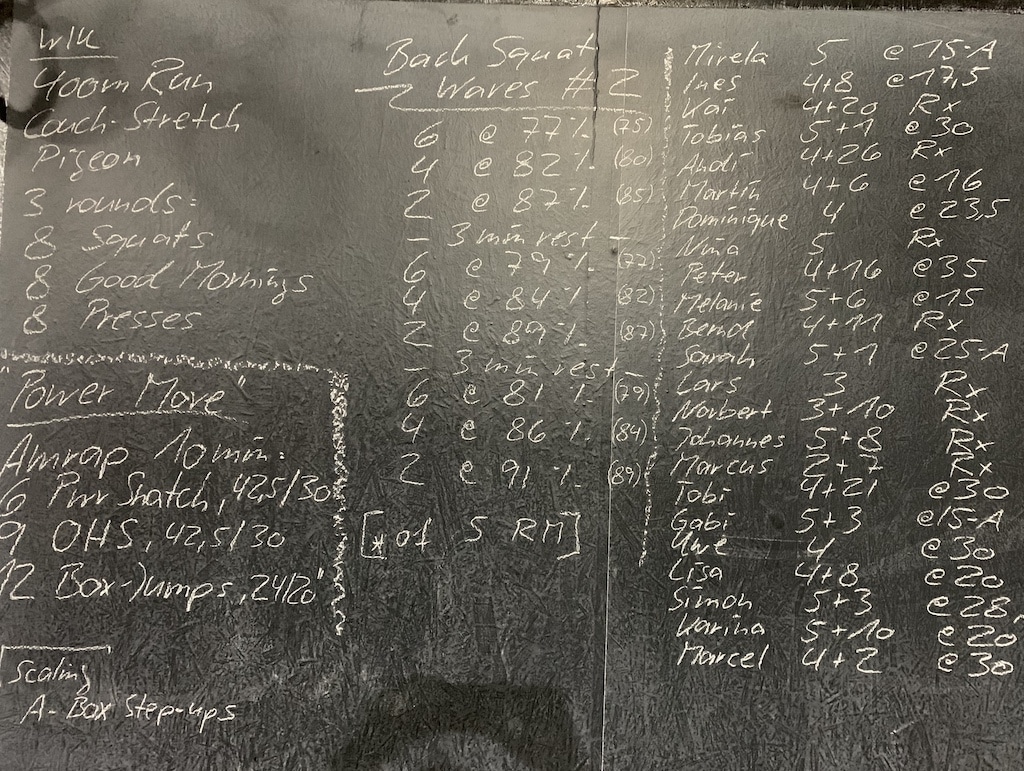 W1U
400m Run
Couch-Stretch
Pigeon
3 rounds:
8 Squats
8 Good Mornings
8 Presses
"Power Move"
Amrap 10min:
6 Pwr Snatch, 42,5/30
9 OHS, 42,5/30
12 Box-Jumps, 24/20"
Scaling
A- Box Step-ups
Back Squat
Waves #2
6 @ 77% (75)
4 @ 82% (80)
2 @ 87% (85)
- 3 min rest -
6 @ 79% (77)
4 @ 84% (82)
2 @ 89% (87)
- 3 min rest -
6 @ 81% (79)
4 @ 86% (84)
2 @ 91% (89)
[* of 5 RM]
Mirela 5 @ 15-A
Ines 4+8 @ 17,5
Kai 4+20 Rx
Tobias 5+1 @ 30
Andi 4+26 Rx
Martin 4+6 @ 16
Dominique 4 @ 23,5
Nina 5 Rx
Peter 4+16 @ 35
Melanie 5+6 @ 15
Bernd 4+11 Rx
Sarah 5+1 @ 25-A
Lars 3 Rx
Norbert 3+10 Rx
Johannes 5+8 Rx
Marcus 2+7 Rx
Tobi 4+21 @ 30
Gabi 5+3 @ 15-A
Uwe 4 @ 30
Lisa 4+8 @ 20
Simon 5+3 @ 28,
Karina 5+10 @ 20
Marcel 4+2 @ 30